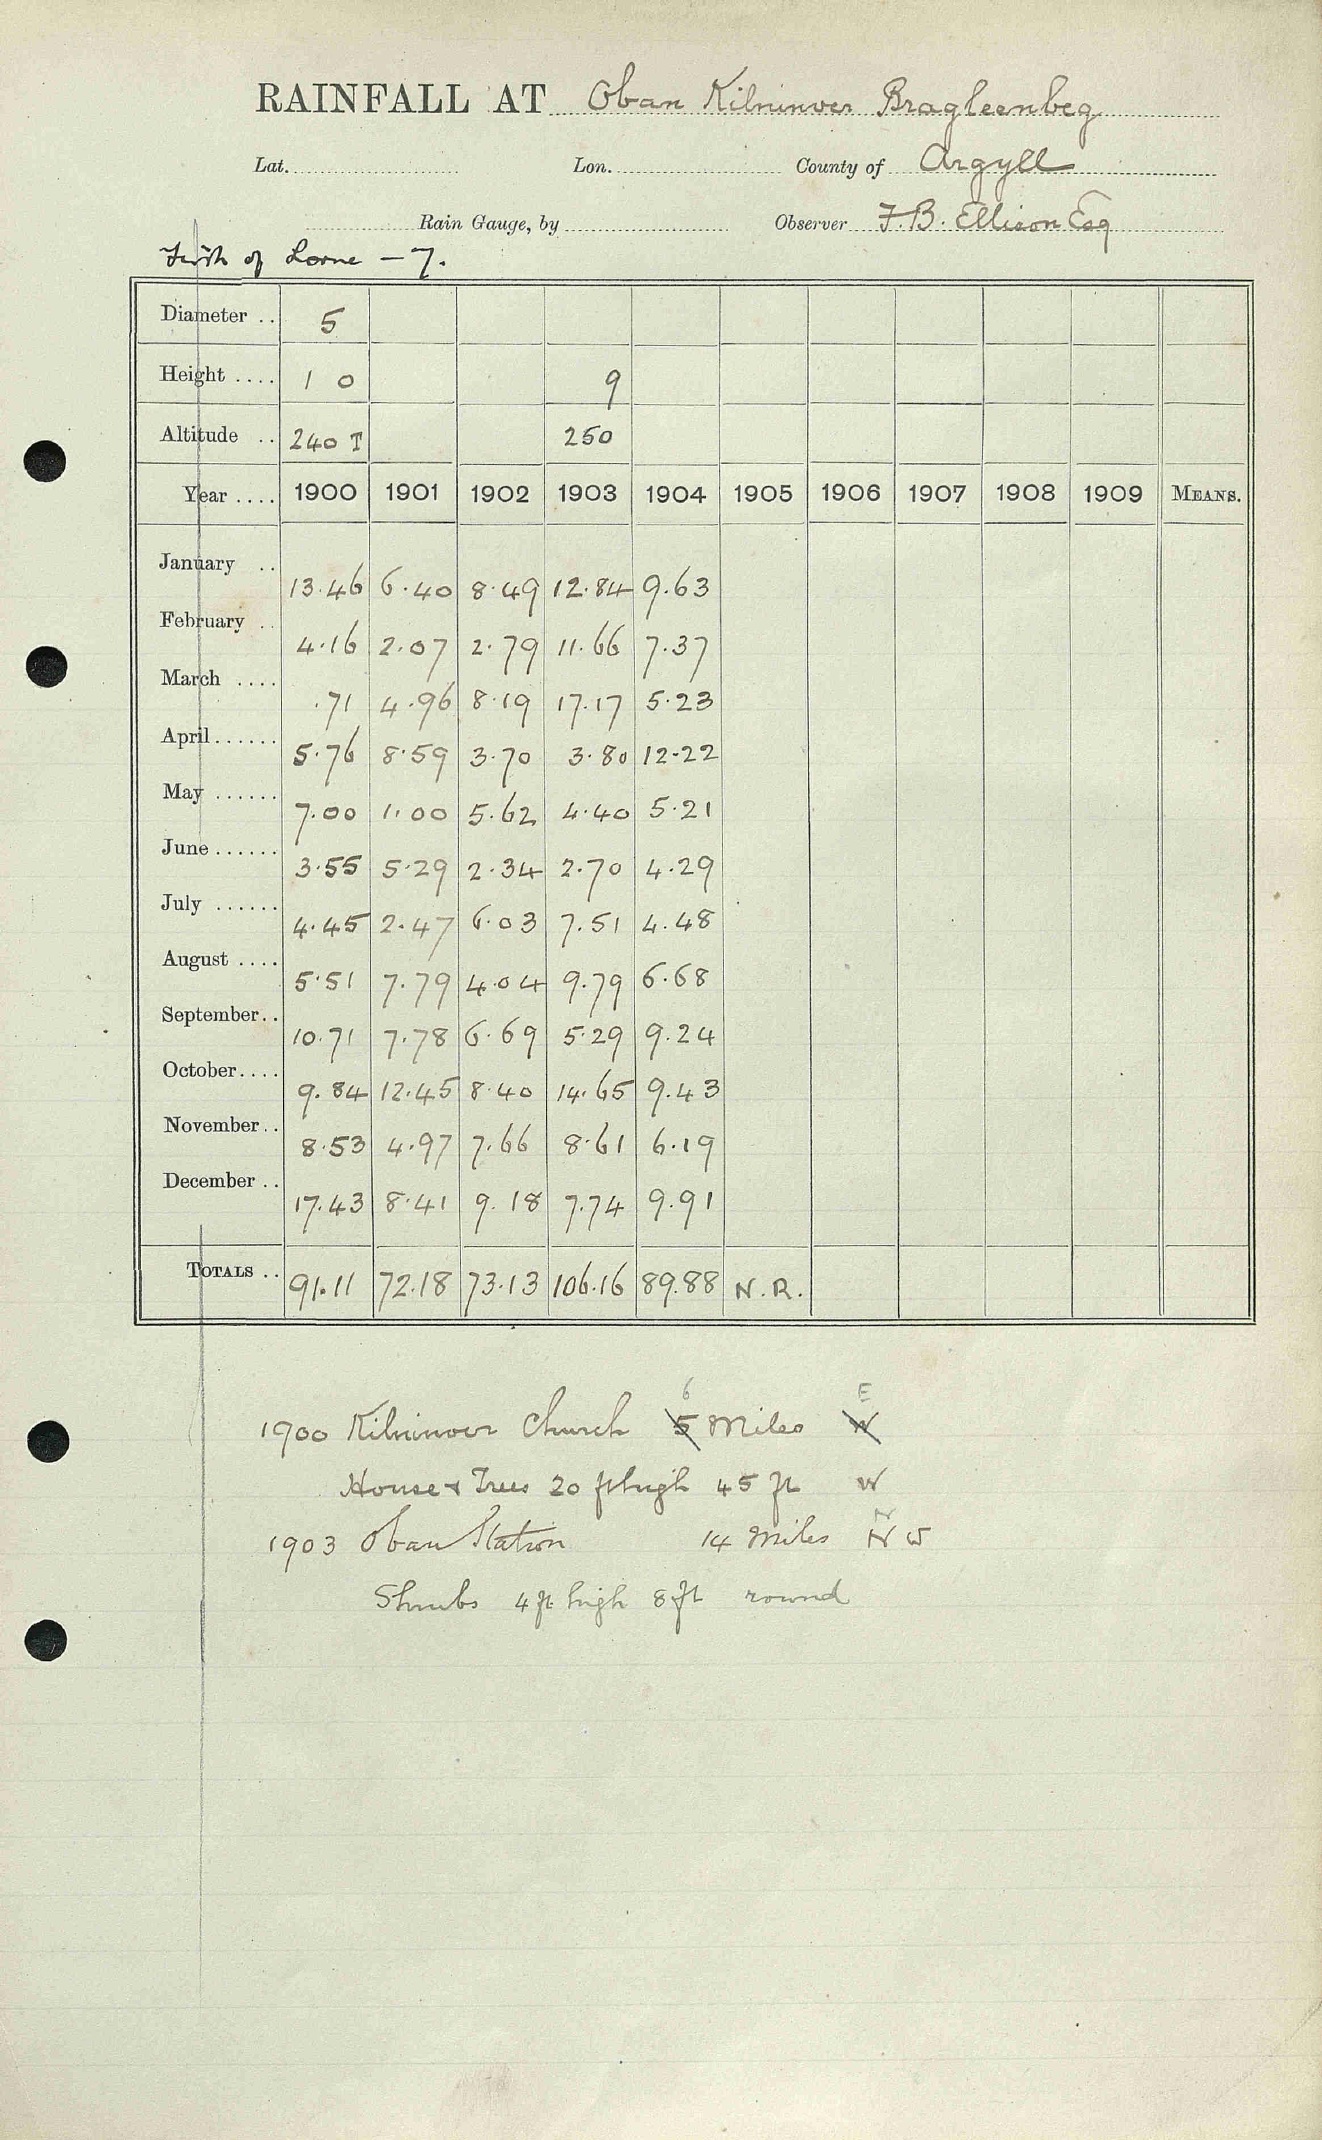 RAINFALL AT Oban Kilninver Bragleenbeg
Lat. Lon. County of Argyll
Rain Gauge, by Observer F.B. Ellison Esq
Firth of Lorne — 7.
Diameter .. 5
Height .... 1 0 9
Altitude .. 240 T 250
Year .... 1900 1901 1902 1903 1904 1905 1906 1907 1908 1909 MEANS.
January .. 13.46 6.40 8.49 12.84 9.63
February .. 4.16 2.07 2.79 11.66 7.37
March .... .71 4.96 8.19 17.17 5.23
April ...... 5.76 8.59 3.70 3.80 12.22
May ...... 7.00 1.00 5.62 4.40 5.21
June ...... 3.55 5.29 2.34 2.70 4.29
July ...... 4.45 2.47 6.03 7.51 4.48
August .... 5.51 7.79 4.04 9.79 6.68
September .. 10.71 7.78 6.69 5.29 9.24
October .... 9.84 12.45 8.40 14.65 9.43
November .. 8.53 4.97 7.66 8.61 6.19
December .. 17.43 8.41 9.18 7.74 9.91
TOTALS .. 91.11 72.18 73.13 106.16 89.88 N.R.
6 E
1900 Kilninver Church 5 Miles W
House & Trees 20 ft high 45 ft W
N
1903 Oban Station 14 Miles N W
Shrubs 4 ft high 8 ft round